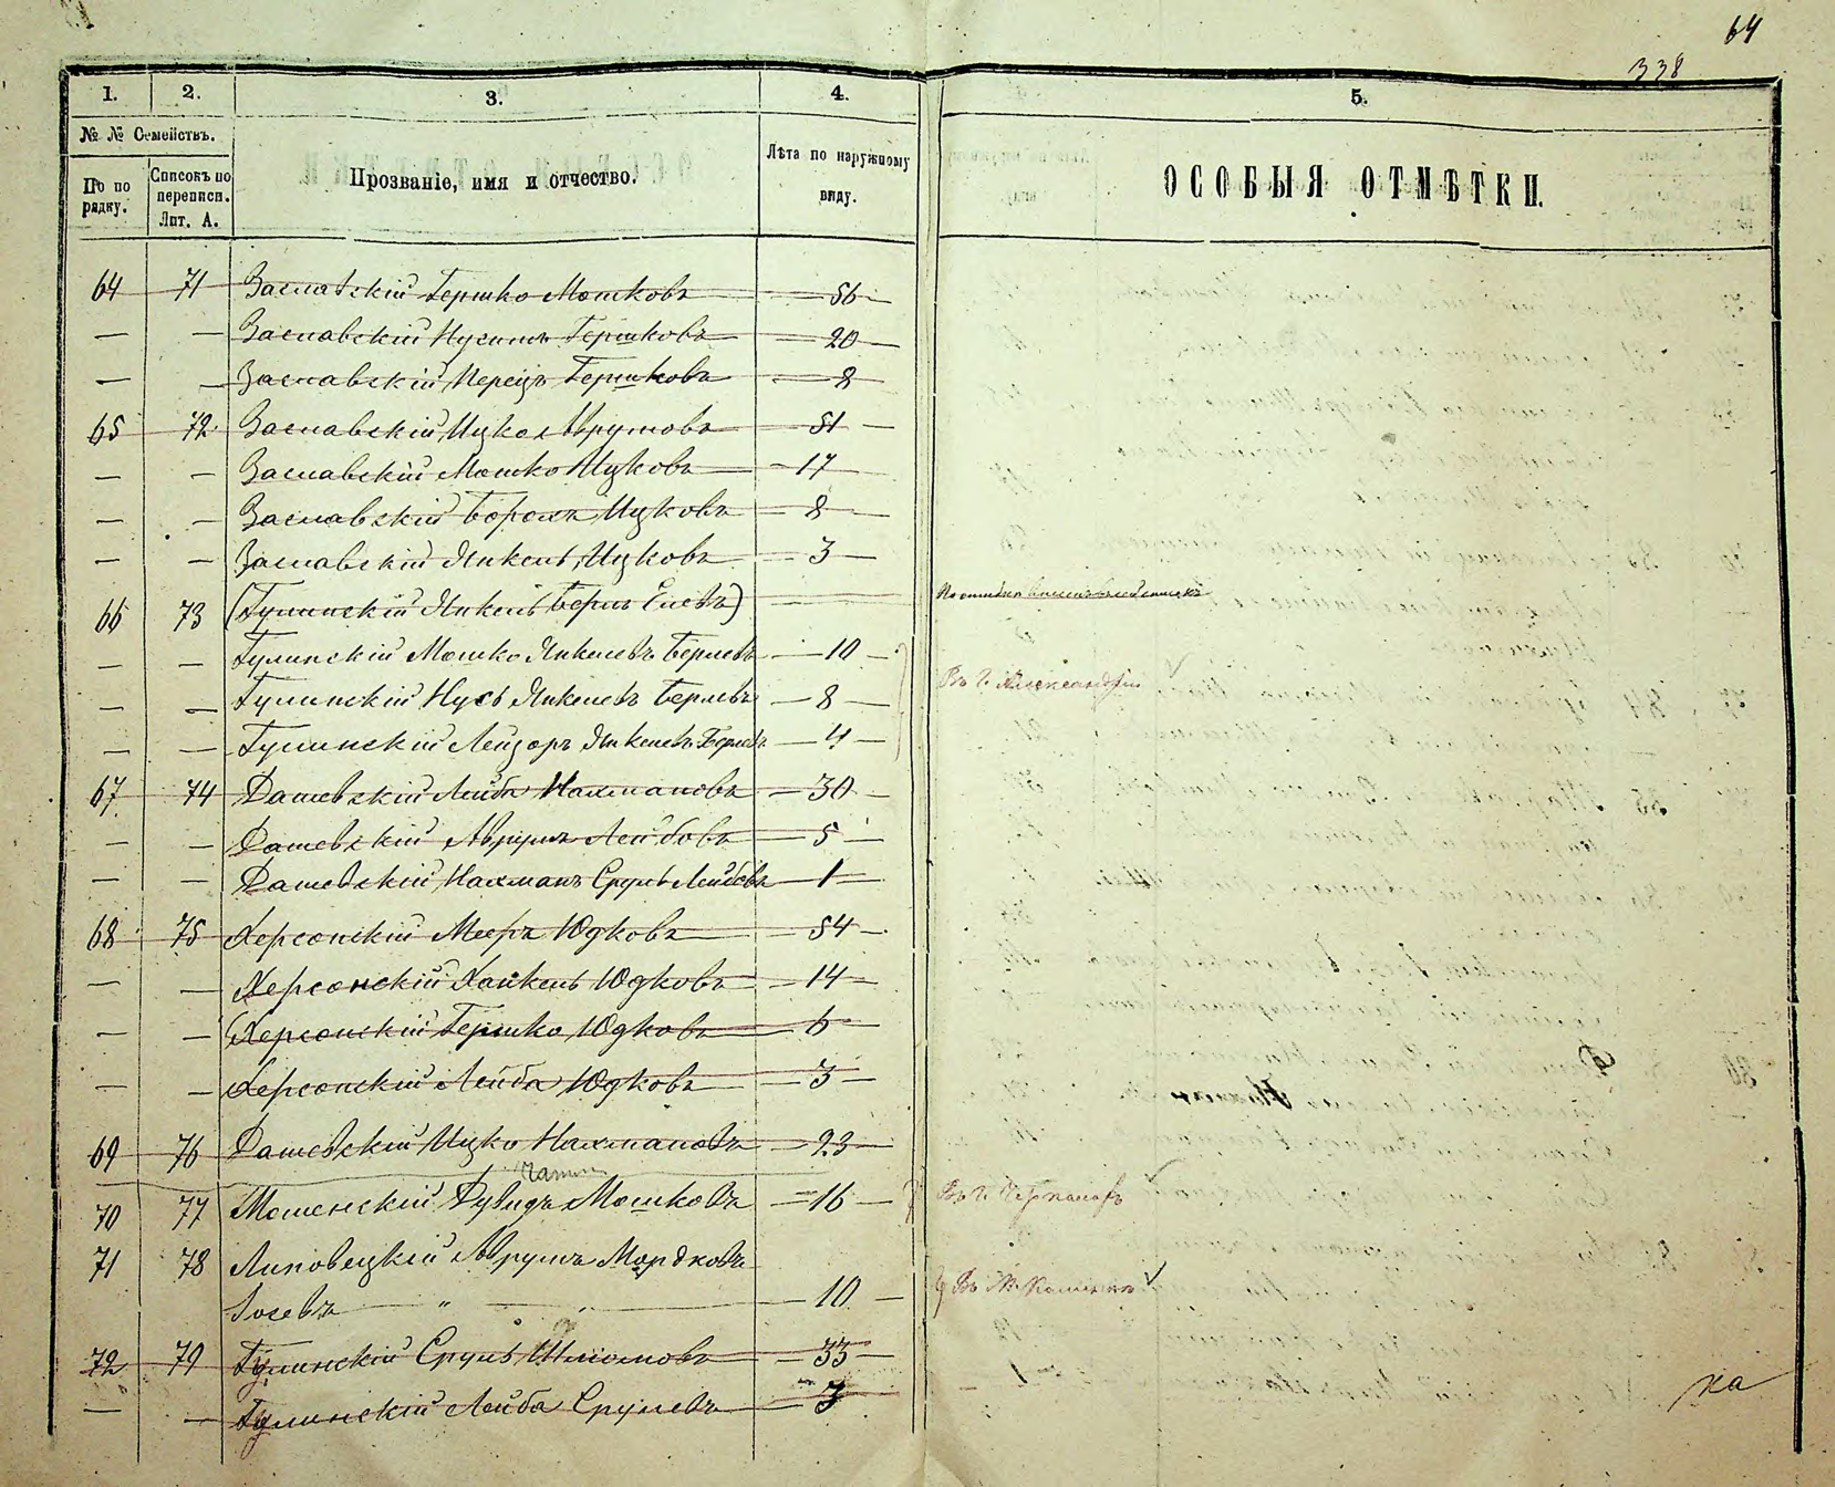 64
338
1. 2. 3. 4. 5.
№ № Семействъ.
По по рядку.
Списокъ по переписи. Лит. А.
Прозваніе, имя и отчество.
Лѣта по наружному виду.
ОСОБЫЯ ОТМѢТКИ.
64 71 Заславскій Гершко Мошковъ — 56 —
— — Заславскій Нусинъ Гершковъ — 20 —
— — Заславскій Перецъ Гершковъ — 8
65 72 Заславскій Ицко Аврумовъ — 51 —
— — Заславскій Мошко Ицковъ — 17
— — Заславскій Борохъ Ицковъ — 8 —
— — Заславскій Янкель Ицковъ — 3 —
66 73 (Гулинскій Янкель Беръ Елевъ) —
— — Гулинскій Мошко Янкелевъ Берлевъ — 10 —
— — Гулинскій Нусь Янкелевъ Берлевъ — 8 — Въ г. Александріи
— — Гулинскій Лейзоръ Янкелевъ Берлевъ — 4 —
67 74 Дашевскій Лейба Нахмановъ — 30 —
— — Дашевскій Аврумъ Лейбовъ — 5 —
— — Дашевскій Нахманъ Сруль Лейбовъ — 1 —
68 75 Херсонскій Мееръ Юдковъ — 54 —
— — Херсонскій Хайкель Юдковъ — 14 —
— — (Херсонскій Гершко Юдковъ — 6 —
— — Херсонскій Лейба Юдковъ — 3 —
69 76 Дашевскій Ицко Нахмановъ — 23 —
70 77 Мошенскій Дувидъ Мошковъ — 16 — Въ г.
71 78 Липовецкій Аврумъ Мордковъ
Іосевъ — " — " — 10 — Въ М. Каменкѣ
72 79 Гулинскій Сруль Шліомовъ — 33 —
— — Гулинскій Лейба Срулевъ — 3
ка